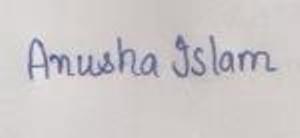 Anusha Islam